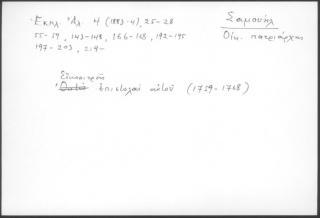 Ἐκκλ. Ἀλ. 4 (1883-4), 25-28
55-59, 143-148, 166-168, 192-195
197-203, 219-
Σαμουὴλ
Οἰκ. πατριάρχης
Εἰκοσιτρεῖς
ἐπιστολαὶ αὐτοῦ (1759-1768)